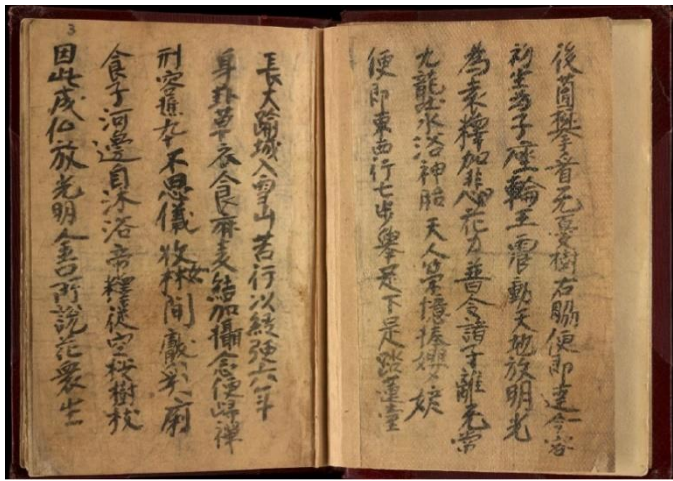 後薗攀手者无憂樹右脇便即達金容
初生太子座輪王震動天地放明光
為表釋加悲心花力普令諸子離无常
九龍吐水洛神胎天人憶捧嬰
便即東西行七步舉足下足踏蓮臺
3
長大踰城入雪山苦行以經強六年
身非草衣食麻麦結加攝念便歸禪
刑容燋卒不思儀牧女林間獻
食了河邊自沐浴帝釋從空桉樹枝
因此成仏放光明金口所說花衆生